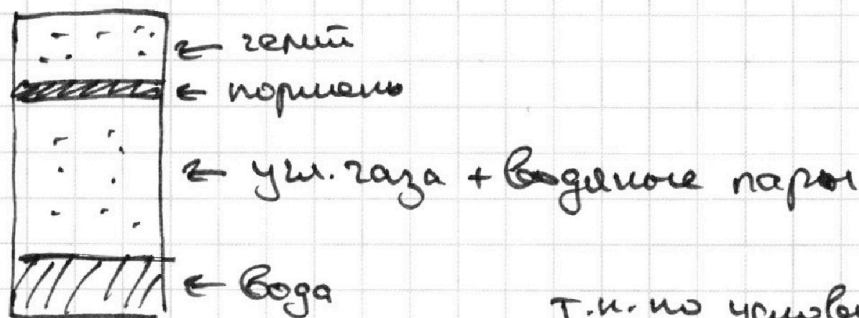 ← гелий
← поршень
← угл. газа + водяные пары
← вода
т.н. по услов